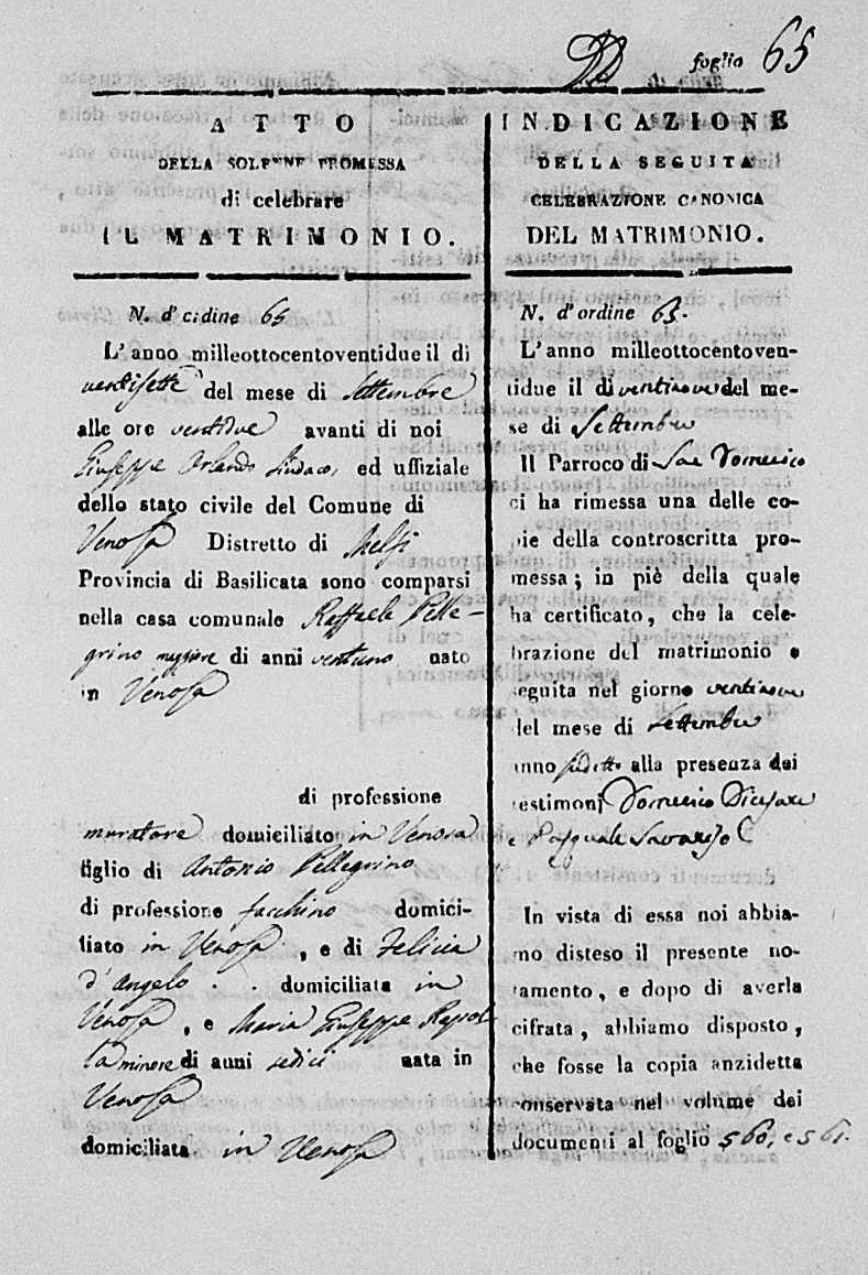 foglio 65
ATTO
DELLA SOLENNE PROMESSA
di celebrare
IL MATRIMONIO.
N. d'ordine 65
L'anno milleottocentoventidue il dì
ventisette del mese di Settembre
alle ore ventidue avanti di noi
Giuseppe Orlando Sindaco, ed uffiziale
dello stato civile del Comune di
Venosa Distretto di Melfi
Provincia di Basilicata sono comparsi
nella casa comunale Raffaele Pelle-
grino maggiore di anni ventuno nato
in Venosa
di professione
muratore domiciliato in Venosa
figlio di Antonio Pellegrino
di professione facchino domici-
liato in Venosa, e di Felicia
d'Angelo . . domiciliata in
Venosa, e Maria Giuseppe Rapol-
la minore di anni sedici nata in
Venosa
domiciliata in Venosa
INDICAZIONE
DELLA SEGUITA
CELEBRAZIONE CANONICA
DEL MATRIMONIO.
N. d'ordine 63.
L'anno milleottocentoven-
tidue il dì ventinove del me-
se di Settembre
Il Parroco di San Domenico
ci ha rimessa una delle co-
pie della controscritta pro-
messa; in piè della quale
ha certificato, che la cele-
brazione del matrimonio è
seguita nel giorno ventinove
del mese di Settembre
anno sudetto alla presenza dei
testimonj Domenico Dicesare
e Pasquale
In vista di essa noi abbia-
mo disteso il presente no-
tamento, e dopo di averla
cifrata, abbiamo disposto,
che fosse la copia anzidetta
conservata nel volume dei
documenti al foglio 560, e 561.